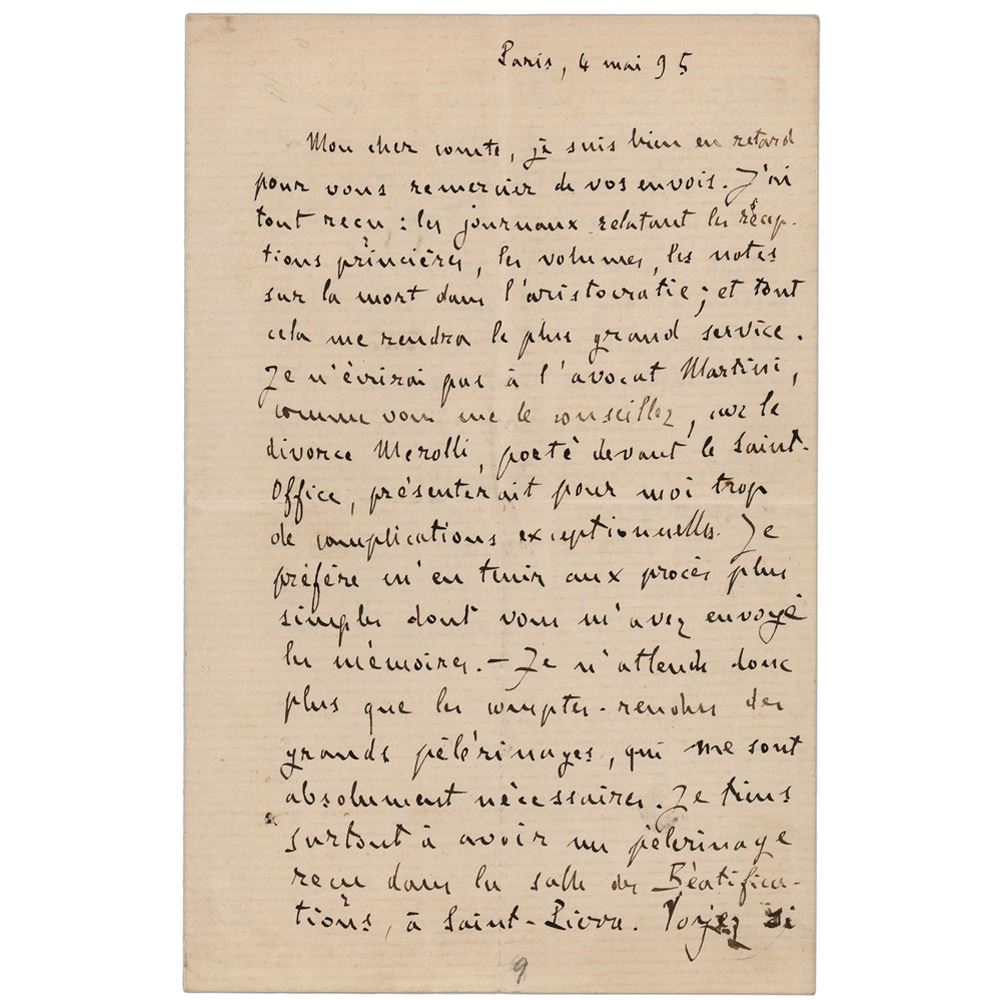 Paris, 4 mai 95
Mon cher comte, je suis bien en retard
pour vous remercier de vos envois. J'ai
tout reçu : les journaux relatant les récep-
tions princières, les volumes, les notes
sur la mort dans l'aristocratie ; et tout
cela me rendra le plus grand service.
Je n'écrirai pas à l'avocat Martini,
comme vous me le conseillez, car le
divorce Merolli, porté devant le Saint-
Office, présenterait pour moi trop
de complications exceptionnelles. Je
préfère m'en tenir aux procès plus
simples dont vous m'avez envoyé
les mémoires. — Je n'attends donc
plus que les comptes-rendus des
grands pélérinages, qui me sont
absolument nécessaires. Je tiens
surtout à avoir un pèlerinage
reçu dans la salle des Béatifica-
tions, à Saint-Pierre. Voyez si
9